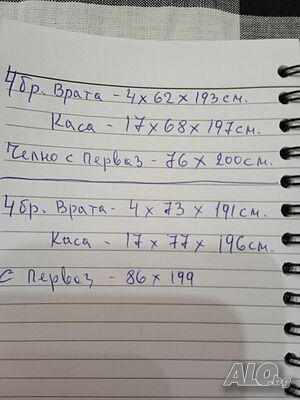 4 бр. Врата - 4 x 62 x 193 см.
Каса - 17 x 68 x 197 см.
Челно с Перваз - 76 x 200 см.
4 бр. Врата - 4 x 73 x 191 см.
Каса - 17 x 77 x 196 см.
С Перваз - 86 x 199
ALO.bg